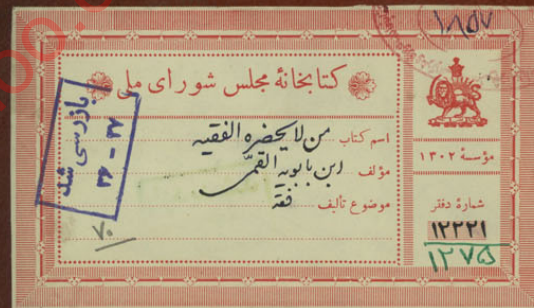 ۱۸۵۷
کتابخانهٔ مجلس شورای ملی
اسم کتاب من لا یحضره الفقیه
مؤلف ابن بابویه القمّی
موضوع تألیف فقه
مؤسسهٔ ۱۳۰۲
شمارهٔ دفتر
۱۲۲۲۱
۱۲۷۵
بازرسی شد
۳۶ - ۳۷
۷۰